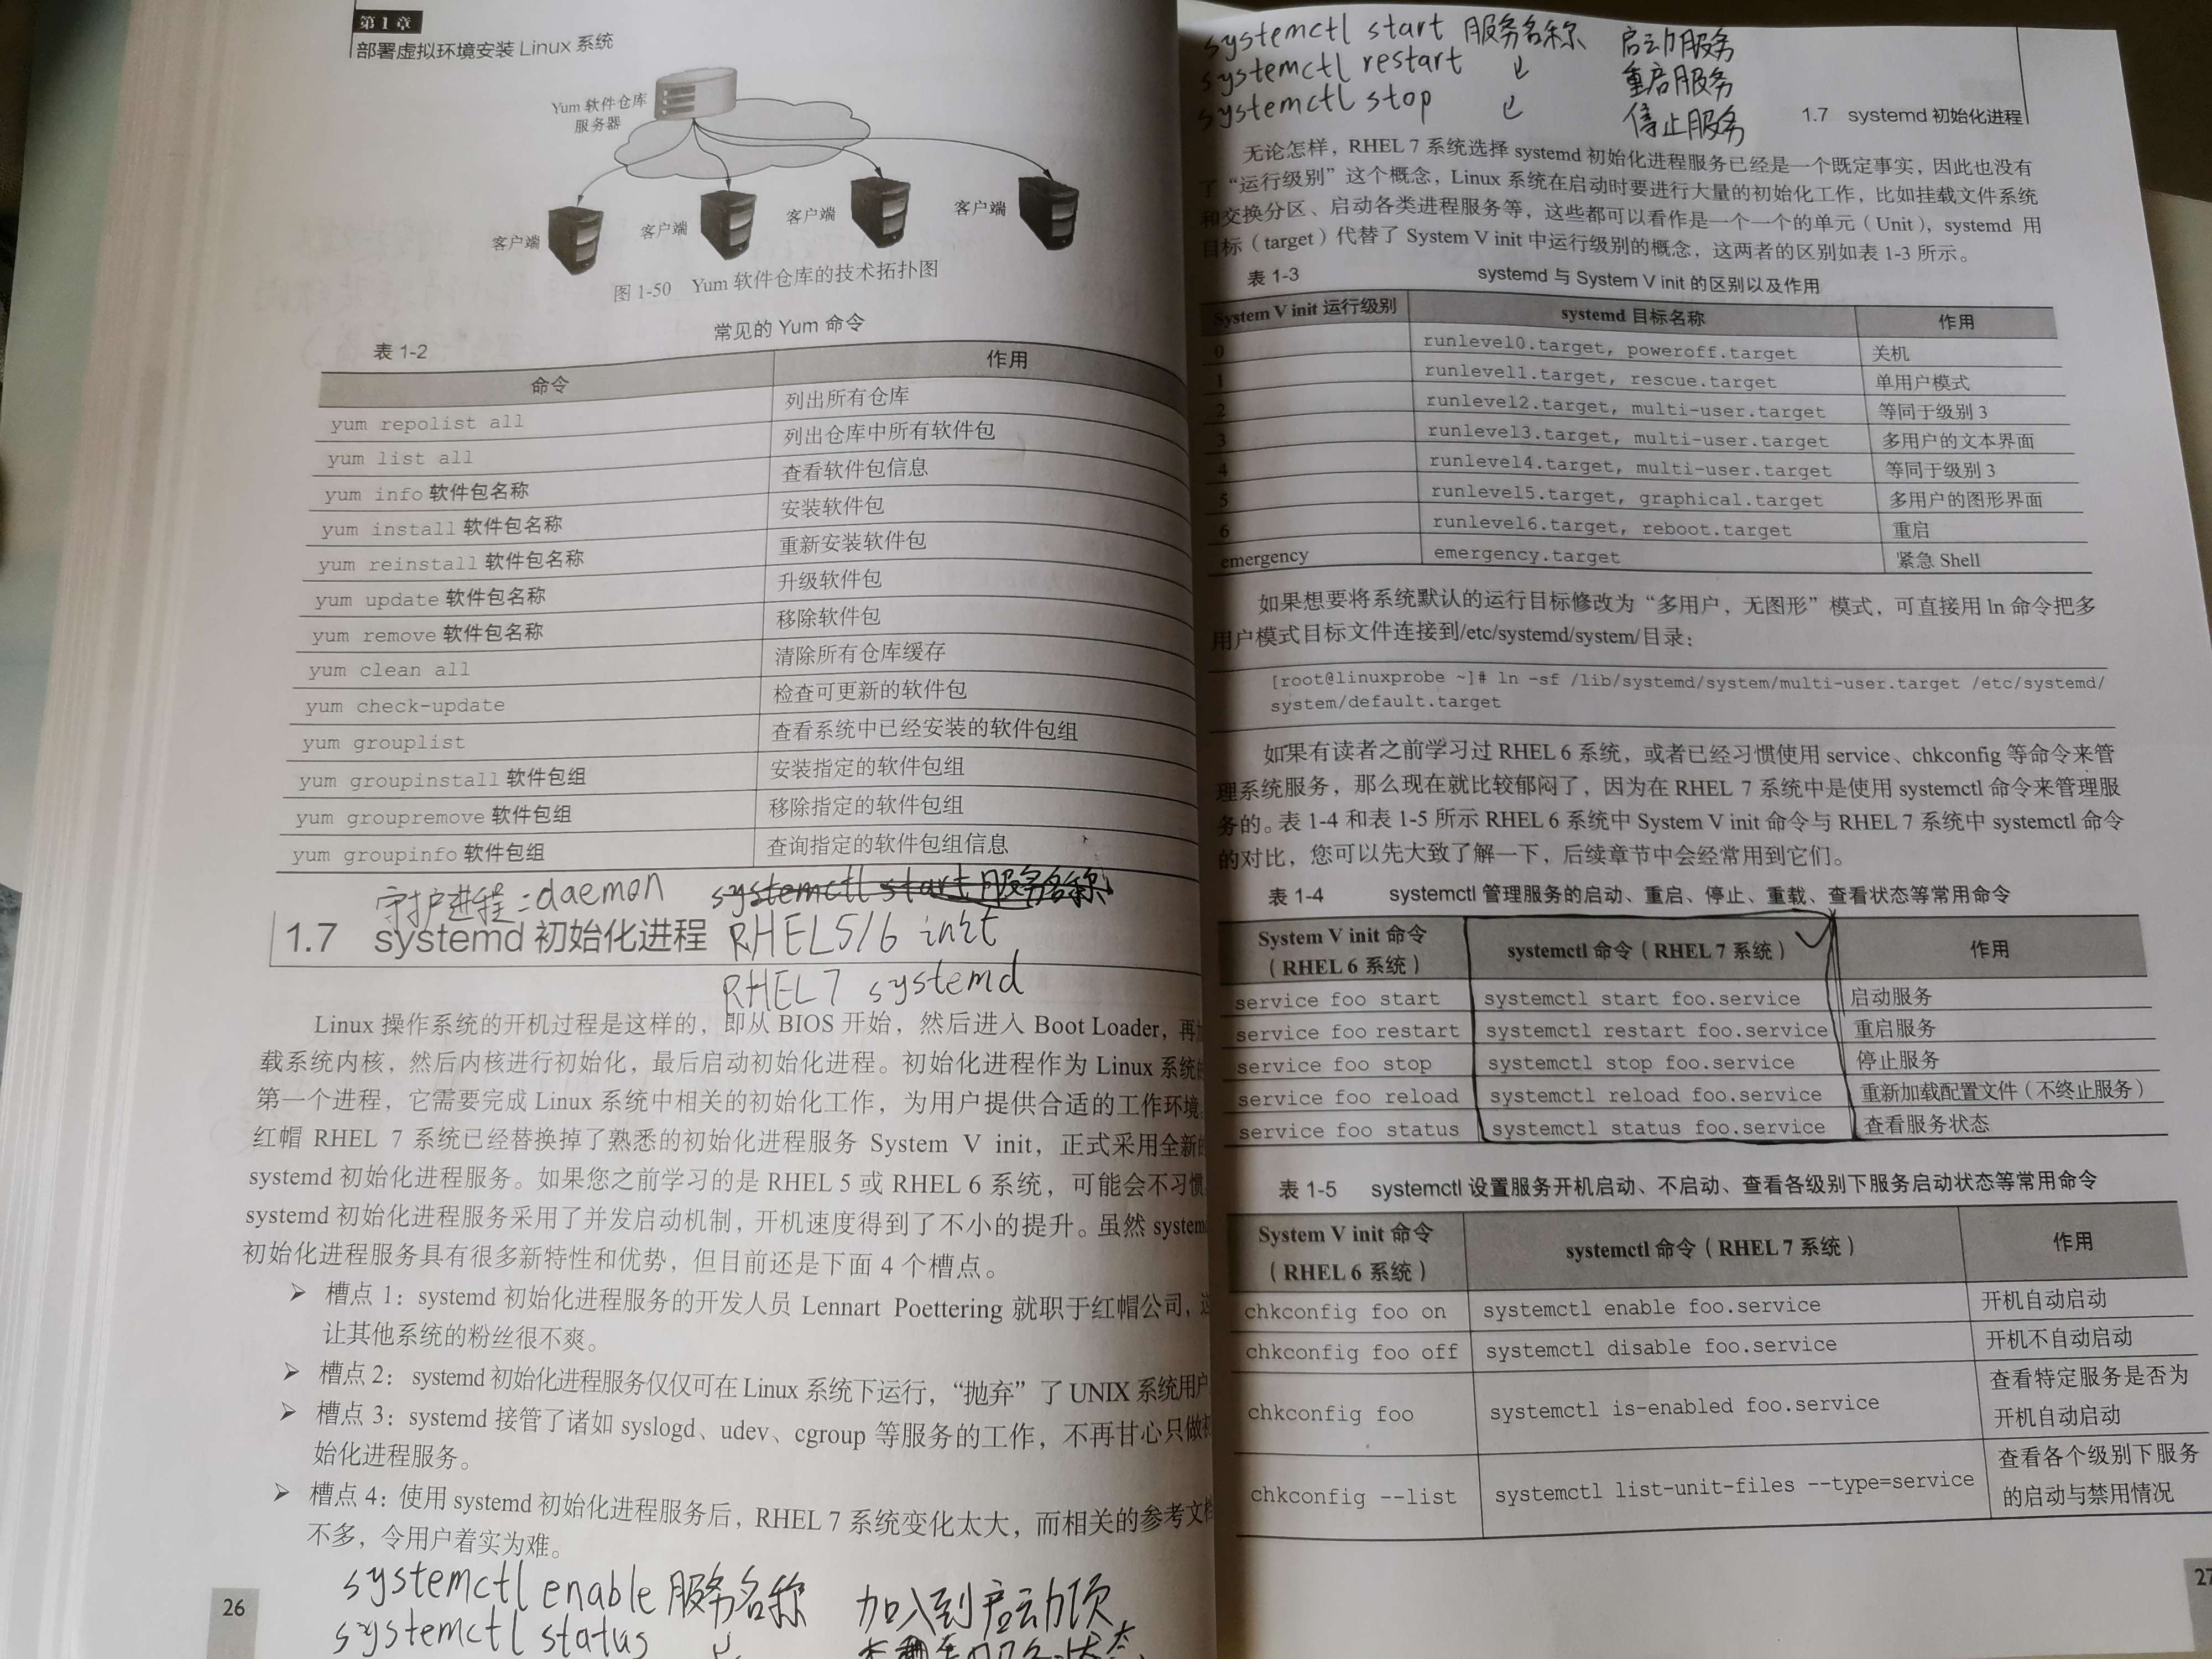 第1章
部署虚拟环境安装 Linux 系统
Yum 软件仓库
服务器
客户端
客户端
客户端
客户端
图 1-50 Yum 软件仓库的技术拓扑图
表 1-2 常见的 Yum 命令
命令 作用
yum repolist all 列出所有仓库
yum list all 列出仓库中所有软件包
yum info 软件包名称 查看软件包信息
yum install 软件包名称 安装软件包
yum reinstall 软件包名称 重新安装软件包
yum update 软件包名称 升级软件包
yum remove 软件包名称 移除软件包
yum clean all 清除所有仓库缓存
yum check-update 检查可更新的软件包
yum grouplist 查看系统中已经安装的软件包组
yum groupinstall 软件包组 安装指定的软件包组
yum groupremove 软件包组 移除指定的软件包组
yum groupinfo 软件包组 查询指定的软件包组信息
守护进程：daemon systemctl start 服务名称
1.7 systemd 初始化进程 RHEL5/6 init
RHEL7 systemd
Linux 操作系统的开机过程是这样的，即从 BIOS 开始，然后进入 Boot Loader，再
载系统内核，然后内核进行初始化，最后启动初始化进程。初始化进程作为 Linux 系统
第一个进程，它需要完成 Linux 系统中相关的初始化工作，为用户提供合适的工作环境
红帽 RHEL 7 系统已经替换掉了熟悉的初始化进程服务 System V init，正式采用全新的
systemd 初始化进程服务。如果您之前学习的是 RHEL 5 或 RHEL 6 系统，可能会不习惯
systemd 初始化进程服务采用了并发启动机制，开机速度得到了不小的提升。虽然 system
初始化进程服务具有很多新特性和优势，但目前还是下面 4 个槽点。
➢ 槽点 1：systemd 初始化进程服务的开发人员 Lennart Poettering 就职于红帽公司，
让其他系统的粉丝很不爽。
➢ 槽点 2：systemd 初始化进程服务仅仅可在 Linux 系统下运行，“抛弃”了 UNIX 系统用户
➢ 槽点 3：systemd 接管了诸如 syslogd、udev、cgroup 等服务的工作，不再甘心只做
始化进程服务。
➢ 槽点 4：使用 systemd 初始化进程服务后，RHEL 7 系统变化太大，而相关的参考文
不多，令用户着实为难。
systemctl enable 服务名称 加入到启动项
systemctl status
26
systemctl start 服务名称 启动服务
systemctl restart ↙ 重启服务
systemctl stop ↙ 停止服务
1.7 systemd 初始化进程
无论怎样，RHEL 7 系统选择 systemd 初始化进程服务已经是一个既定事实，因此也没有
了“运行级别”这个概念，Linux 系统在启动时要进行大量的初始化工作，比如挂载文件系统
和交换分区、启动各类进程服务等，这些都可以看作是一个一个的单元（Unit），systemd 用
目标（target）代替了 System V init 中运行级别的概念，这两者的区别如表 1-3 所示。
表 1-3 systemd 与 System V init 的区别以及作用
System V init 运行级别 systemd 目标名称 作用
0 runlevel0.target, poweroff.target 关机
1 runlevel1.target, rescue.target 单用户模式
2 runlevel2.target, multi-user.target 等同于级别 3
3 runlevel3.target, multi-user.target 多用户的文本界面
4 runlevel4.target, multi-user.target 等同于级别 3
5 runlevel5.target, graphical.target 多用户的图形界面
6 runlevel6.target, reboot.target 重启
emergency emergency.target 紧急 Shell
如果想要将系统默认的运行目标修改为“多用户，无图形”模式，可直接用 ln 命令把多
用户模式目标文件连接到/etc/systemd/system/目录：
[root@linuxprobe ~]# ln -sf /lib/systemd/system/multi-user.target /etc/systemd/
system/default.target
如果有读者之前学习过 RHEL 6 系统，或者已经习惯使用 service、chkconfig 等命令来管
理系统服务，那么现在就比较郁闷了，因为在 RHEL 7 系统中是使用 systemctl 命令来管理服
务的。表 1-4 和表 1-5 所示 RHEL 6 系统中 System V init 命令与 RHEL 7 系统中 systemctl 命令
的对比，您可以先大致了解一下，后续章节中会经常用到它们。
表 1-4 systemctl 管理服务的启动、重启、停止、重载、查看状态等常用命令
System V init 命令
（RHEL 6 系统） systemctl 命令（RHEL 7 系统） 作用
service foo start systemctl start foo.service 启动服务
service foo restart systemctl restart foo.service 重启服务
service foo stop systemctl stop foo.service 停止服务
service foo reload systemctl reload foo.service 重新加载配置文件（不终止服务）
service foo status systemctl status foo.service 查看服务状态
表 1-5 systemctl 设置服务开机启动、不启动、查看各级别下服务启动状态等常用命令
System V init 命令
（RHEL 6 系统） systemctl 命令（RHEL 7 系统） 作用
chkconfig foo on systemctl enable foo.service 开机自动启动
chkconfig foo off systemctl disable foo.service 开机不自动启动
chkconfig foo systemctl is-enabled foo.service 查看特定服务是否为
开机自动启动
chkconfig --list systemctl list-unit-files --type=service 查看各个级别下服务
的启动与禁用情况
27